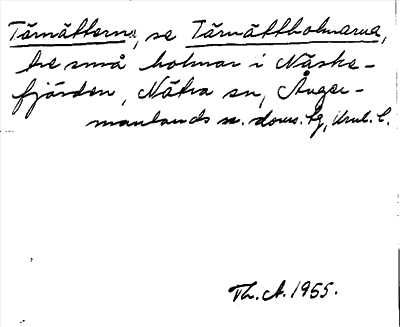 Tärnättarna, se Tärnättholmarna,
tre små holmar i Näske-
fjärden, Nätra sn, Ånger-
manlands n. doms. tg, Vnl. l.
Th. A. 1955.